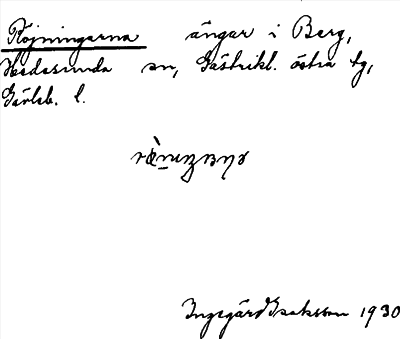 Röjningarna ängar i Berg,
Hedesunda sn, Gästrikl. östra tg,
Gävleb. l.
Ingegärd Isaksson 1930